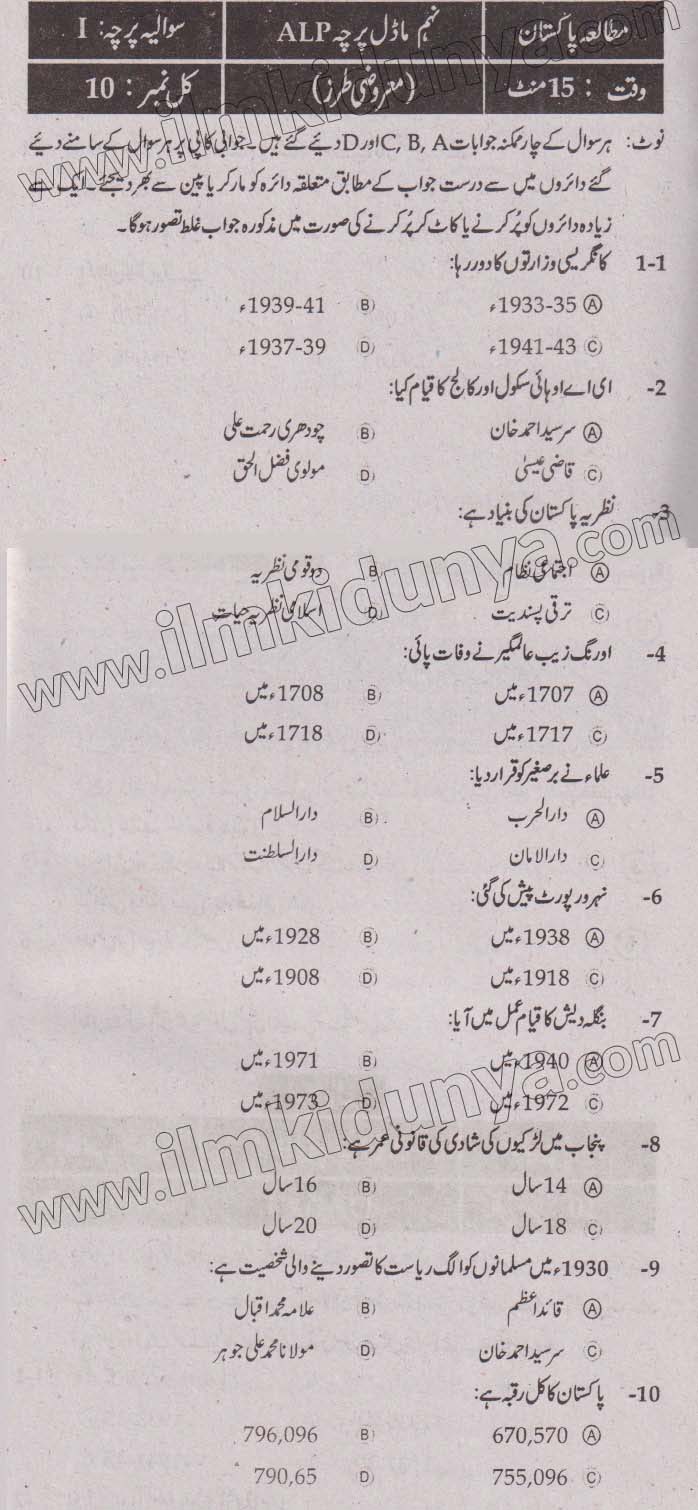 مطالعہ پاکستان نہم ماڈل پرچہ ALP سوالیہ پرچہ: I
وقت : 15 منٹ (معروضی طرز) کل نمبر: 10
نوٹ: ہر سوال کے چار ممکنہ جوابات C, B, A اور D دیئے گئے ہیں۔ جوابی کاپی پر ہر سوال کے سامنے دیئے
گئے دائروں میں سے درست جواب کے مطابق متعلقہ دائرہ کو مارکر یا پین سے بھر دیجئے۔ ایک سے
زیادہ دائروں کو پُر کرنے یا کاٹ کر پُر کرنے کی صورت میں مذکورہ جواب غلط تصور ہوگا۔
1-1 کانگریسی وزارتوں کا دور رہا:
A 1933-35ء B 1939-41ء
C 1941-43ء D 1937-39ء
2- ای اے او ہائی سکول اور کالج کا قیام کیا:
A سر سید احمد خان B چودھری رحمت علی
C قاضی عیسیٰ D مولوی فضل الحق
3- نظریہ پاکستان کی بنیاد ہے:
A اجتماعی نظام B دو قومی نظریہ
C ترقی پسندیت D اسلامی نظریہ حیات
4- اورنگ زیب عالمگیر نے وفات پائی:
A 1707ء میں B 1708ء میں
C 1717ء میں D 1718ء میں
5- علماء نے برصغیر کو قرار دیا:
A دارالحرب B دارالسلام
C دارالامان D دارالسلطنت
6- نہرو رپورٹ پیش کی گئی:
A 1938ء میں B 1928ء میں
C 1918ء میں D 1908ء میں
7- بنگلہ دیش کا قیام عمل میں آیا:
A 1940ء میں B 1971ء میں
C 1972ء میں D 1973ء میں
8- پنجاب میں لڑکیوں کی شادی کی قانونی عمر ہے:
A 14 سال B 16 سال
C 18 سال D 20 سال
9- 1930ء میں مسلمانوں کو الگ ریاست کا تصور دینے والی شخصیت ہے:
A قائداعظم B علامہ محمد اقبال
C سر سید احمد خان D مولانا محمد علی جوہر
10- پاکستان کا کل رقبہ ہے:
A 670,570 B 796,096
C 755,096 D 790,65
www.ilmkidunya.com
www.ilmkidunya.com
www.ilmkidunya.com